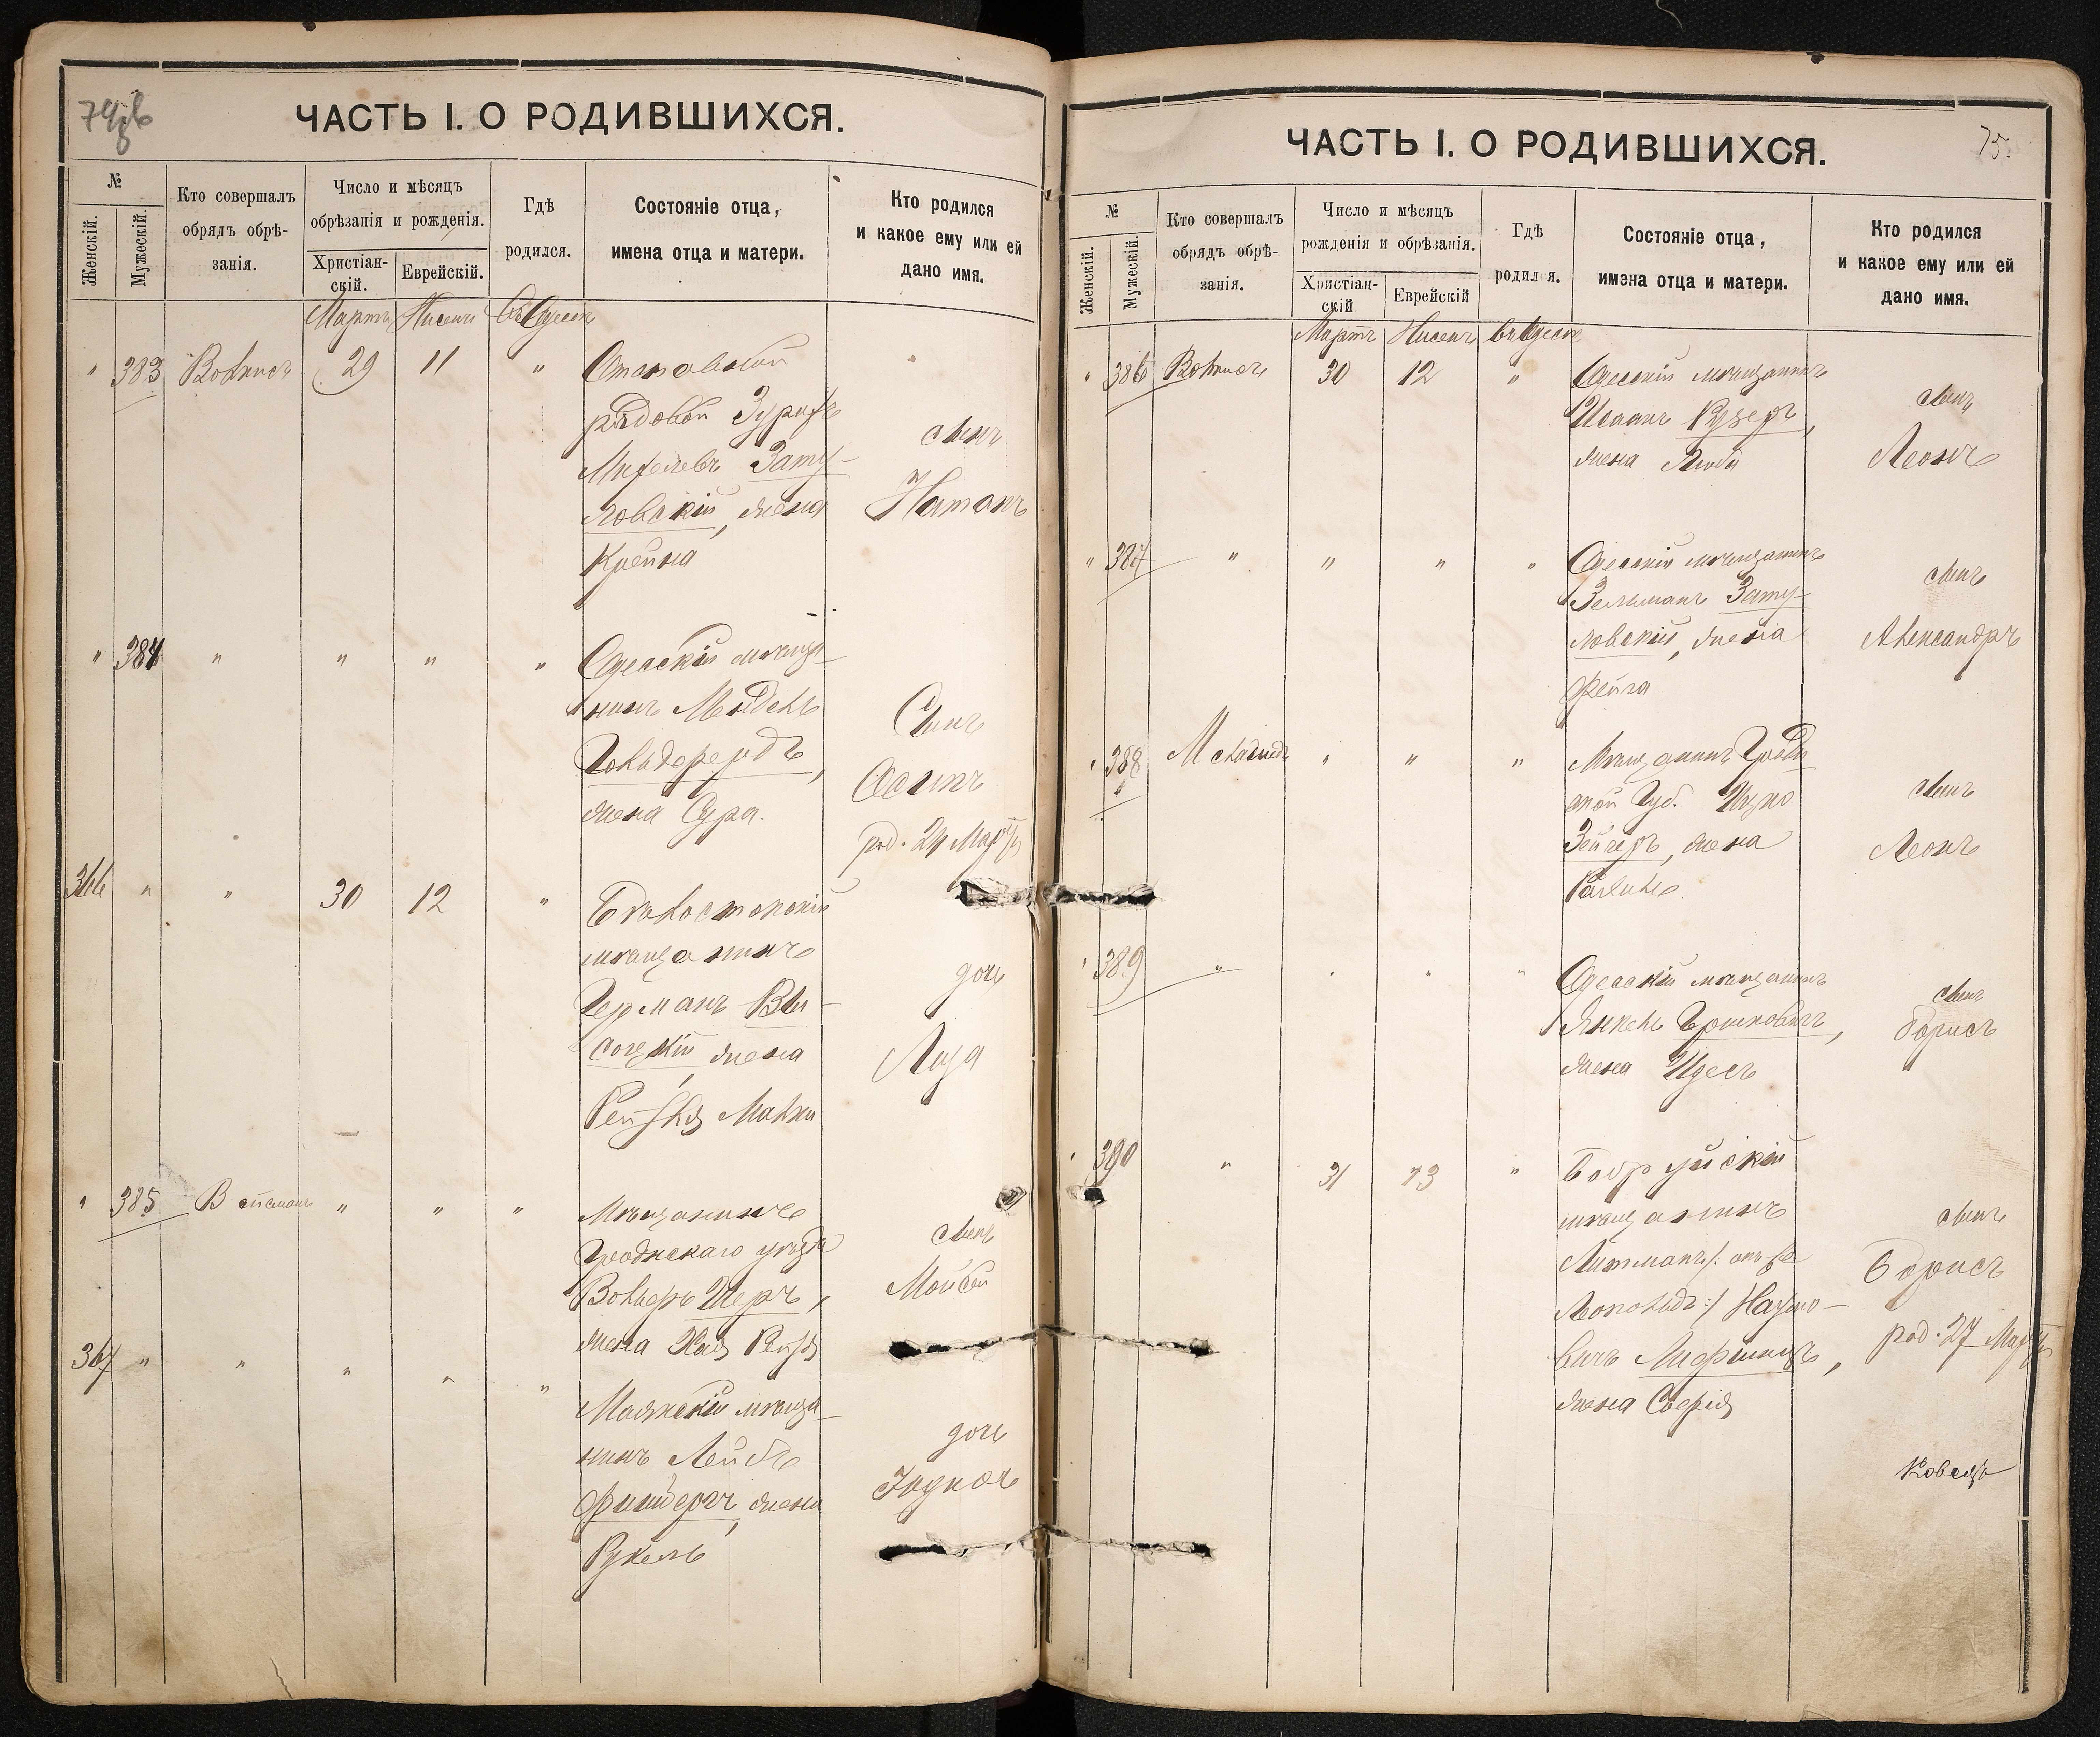 74об
ЧАСТЬ I. О РОДИВШИХСЯ.
№
Женскій.
Мужескій.
Кто совершалъ
обрядъ обрѣ-
занія.
Число и мѣсяцъ
обрѣзанія и рожденія.
Христіан-
скій.
Еврейскій.
Гдѣ
родился.
Состояніе отца,
имена отца и матери.
Кто родился
и какое ему или ей
дано имя.
Мартъ Нисенъ въ Одессѣ
" 383 29 11 "
рядовой
Зату-
ловскій, жена
Крейна
сынъ
Натанъ
" 384 " " " "
Одесскій мѣща-
нинъ Мендель
Гольдферъ
жена Сура.
Сынъ
Осипъ
род. 24 Марта
366 " " 30 12 "
Бѣлостокскій
мѣщанинъ
Германъ Вы-
соцкій, жена
Рейзля Малка
дочь
Лиза
" 385 Вейсманъ " " "
Мѣщанинъ
Гродненскаго уѣзда
Вольфъ Шеръ,
жена Хая Рейзя
сынъ
Мойсей
367 " " " " "
Маякскій мѣща-
нинъ Лейбъ
жена
Рухель
дочь
Юдиѳь
ЧАСТЬ I. О РОДИВШИХСЯ.
75.
№
Женскій.
Мужескій.
Кто совершалъ
обрядъ обрѣ-
занія.
Число и мѣсяцъ
рожденія и обрѣзанія.
Христіан-
скій
Еврейскій
Гдѣ
родился.
Состояніе отца,
имена отца и матери.
Кто родился
и какое ему или ей
дано имя.
Мартъ Нисенъ въ Одессѣ
" 386 30 12 "
Одесскій мѣщанинъ
Исаакъ Кузеръ,
жена Люба
сынъ
Леонъ
" 387 " " " "
Одесскій мѣщанинъ
Зельманъ Зату-
ловскій, жена
Фейга
сынъ
Александръ
" 388 " " "
Мѣщанинъ Гродн
ской Губ. Ицко
Зейгеръ, жена
сынъ
Леонъ
" 389 " " " "
Одесскій мѣщанинъ
Янкель Гершковичъ,
жена Идесъ
сынъ
Борисъ
" 390 " 31 13 "
Бобруйскій
мѣщанинъ
Литманъ /: онъ же
Леопольдъ :/
вичъ Лифшицъ,
жена Софія
сынъ
Борисъ
род. 27 Марта